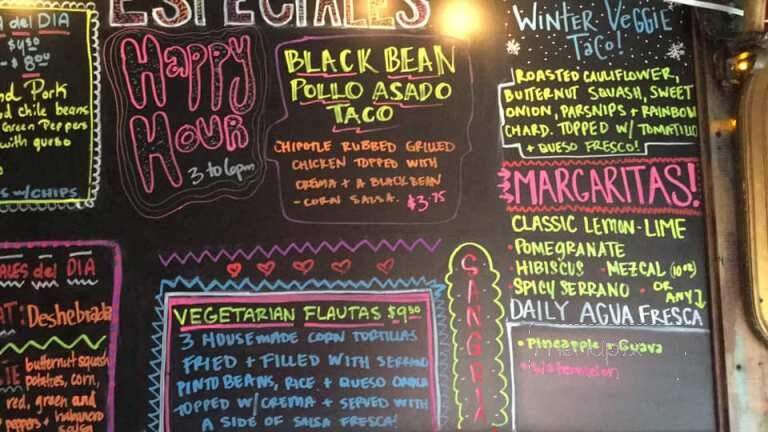 ESPECIALES
del DIA
$4.50
- $8.00
Pork
chile beans
Green Peppers
with queso
w/CHIPS
DEL DIA
Deshebrada
butternut squash
potatoes, corn,
red, green and
peppers + habanero
salsa
Happy
Hour
3 to 6pm
BLACK BEAN
POLLO ASADO
TACO
CHIPOTLE RUBBED GRILLED
CHICKEN TOPPED WITH
CREMA + A BLACK BEAN
- CORN SALSA. $3.75
VEGETARIAN FLAUTAS $9.50
3 HOUSEMADE CORN TORTILLAS
FRIED + FILLED WITH SERRANO
PINTO BEANS, RICE + QUESO
TOPPED W/ CREMA + SERVED WITH
A SIDE OF SALSA FRESCA!
SANGRIA
WINTER VEGGIE
TACO!
ROASTED CAULIFLOWER,
BUTTERNUT SQUASH, SWEET
ONION, PARSNIPS + RAINBOW
CHARD. TOPPED W/ TOMATILLO
+ QUESO FRESCO!
MARGARITAS!
CLASSIC LEMON-LIME
• POMEGRANATE
• HIBISCUS • MEZCAL (10 oz)
• SPICY SERRANO • OR ANY
DAILY AGUA FRESCA
• Pineapple + Guava
• Watermelon